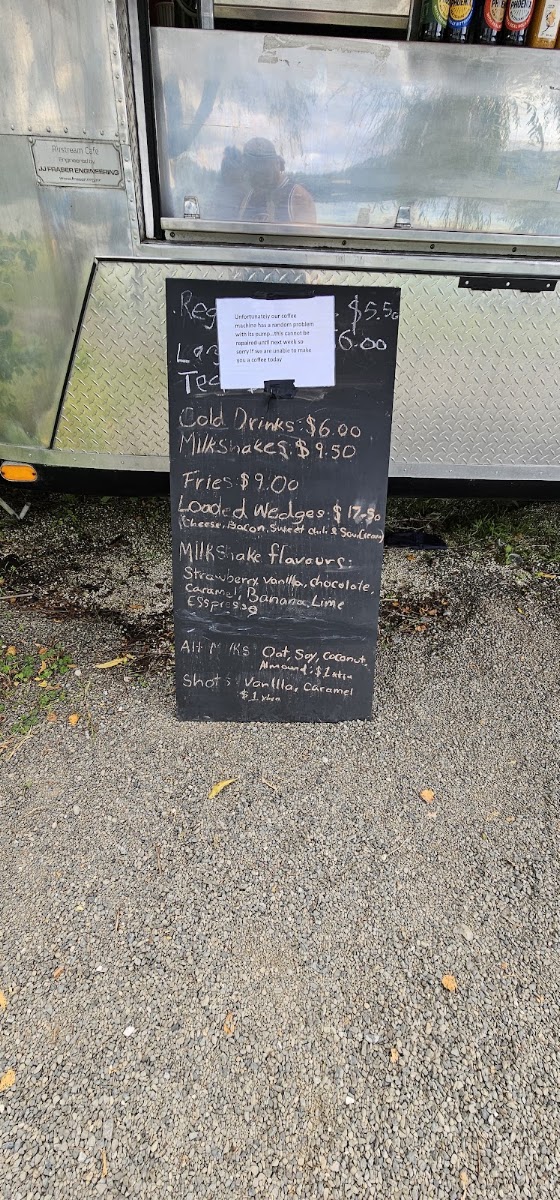 Airstream Cafe
Engineered by
JJ FRASER ENGINEERING
Reg $5.50
Unfortunately our coffee
machine has a random problem
with its pump..this cannot be
repaired until next week so
sorry if we are unable to make
you a coffee today
6.00
Cold Drinks: $6.00
Milkshakes: $9.50
Fries: $9.00
Loaded Wedges: $17.50
(Cheese, Bacon, Sweet chili & Sour Cream)
Milkshake flavours:
Strawberry, vanilla, chocolate,
Caramel, Banana, Lime
ESspresso
Alt Milks: Oat, Soy, Coconut,
Almound: $1 xtra
Shots: Vanilla, Caramel
$1 xtra